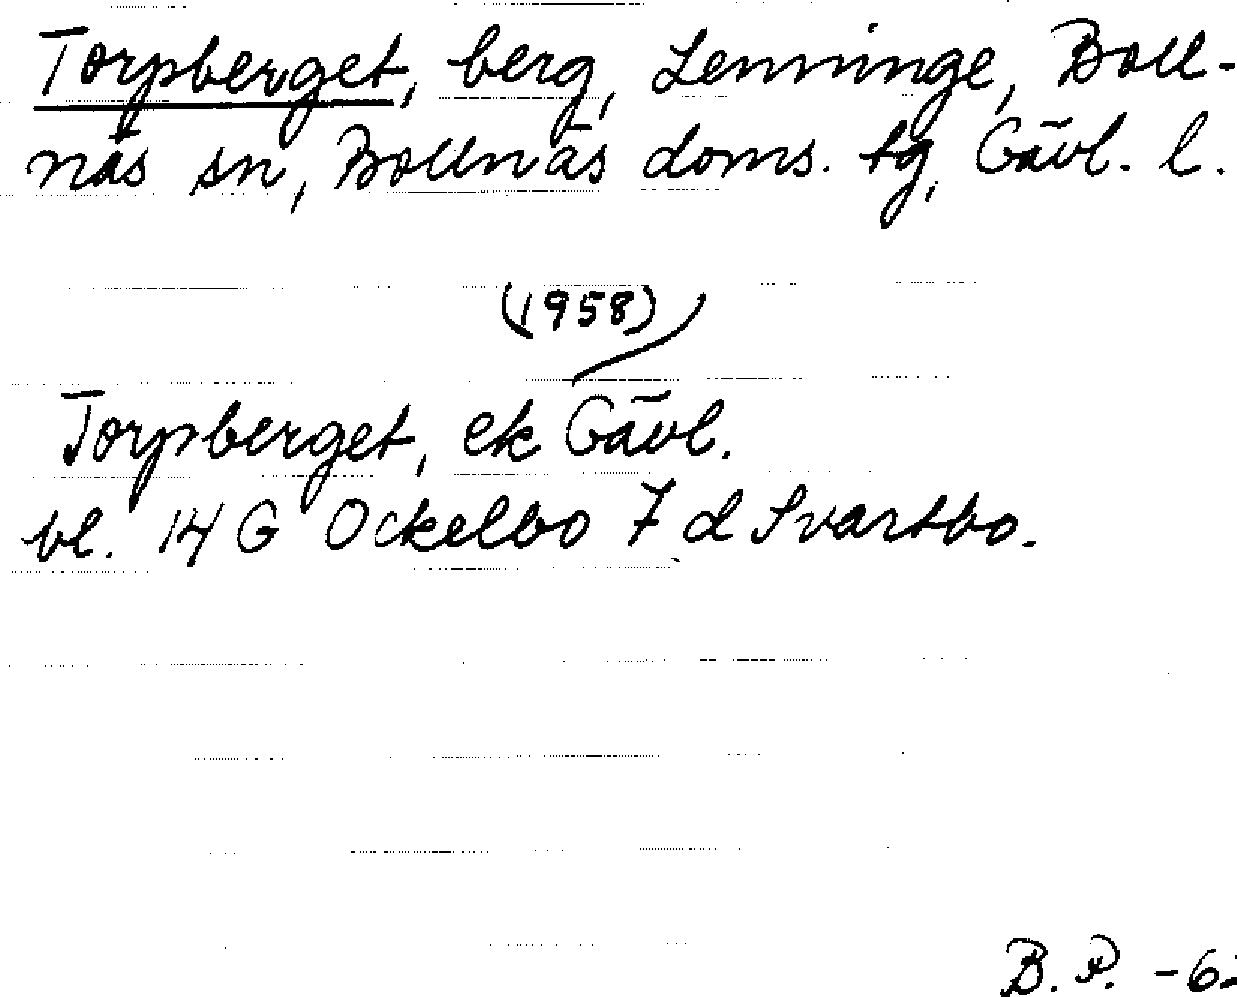 Torpberget, berg, Lenninge, Boll-
näs sn, Bollnäs doms. tg, Gävl. l.
(1958)
Torpberget, ek Gävl.
bl. 14 G Ockelbo 7 d Svartbo.
B. P.